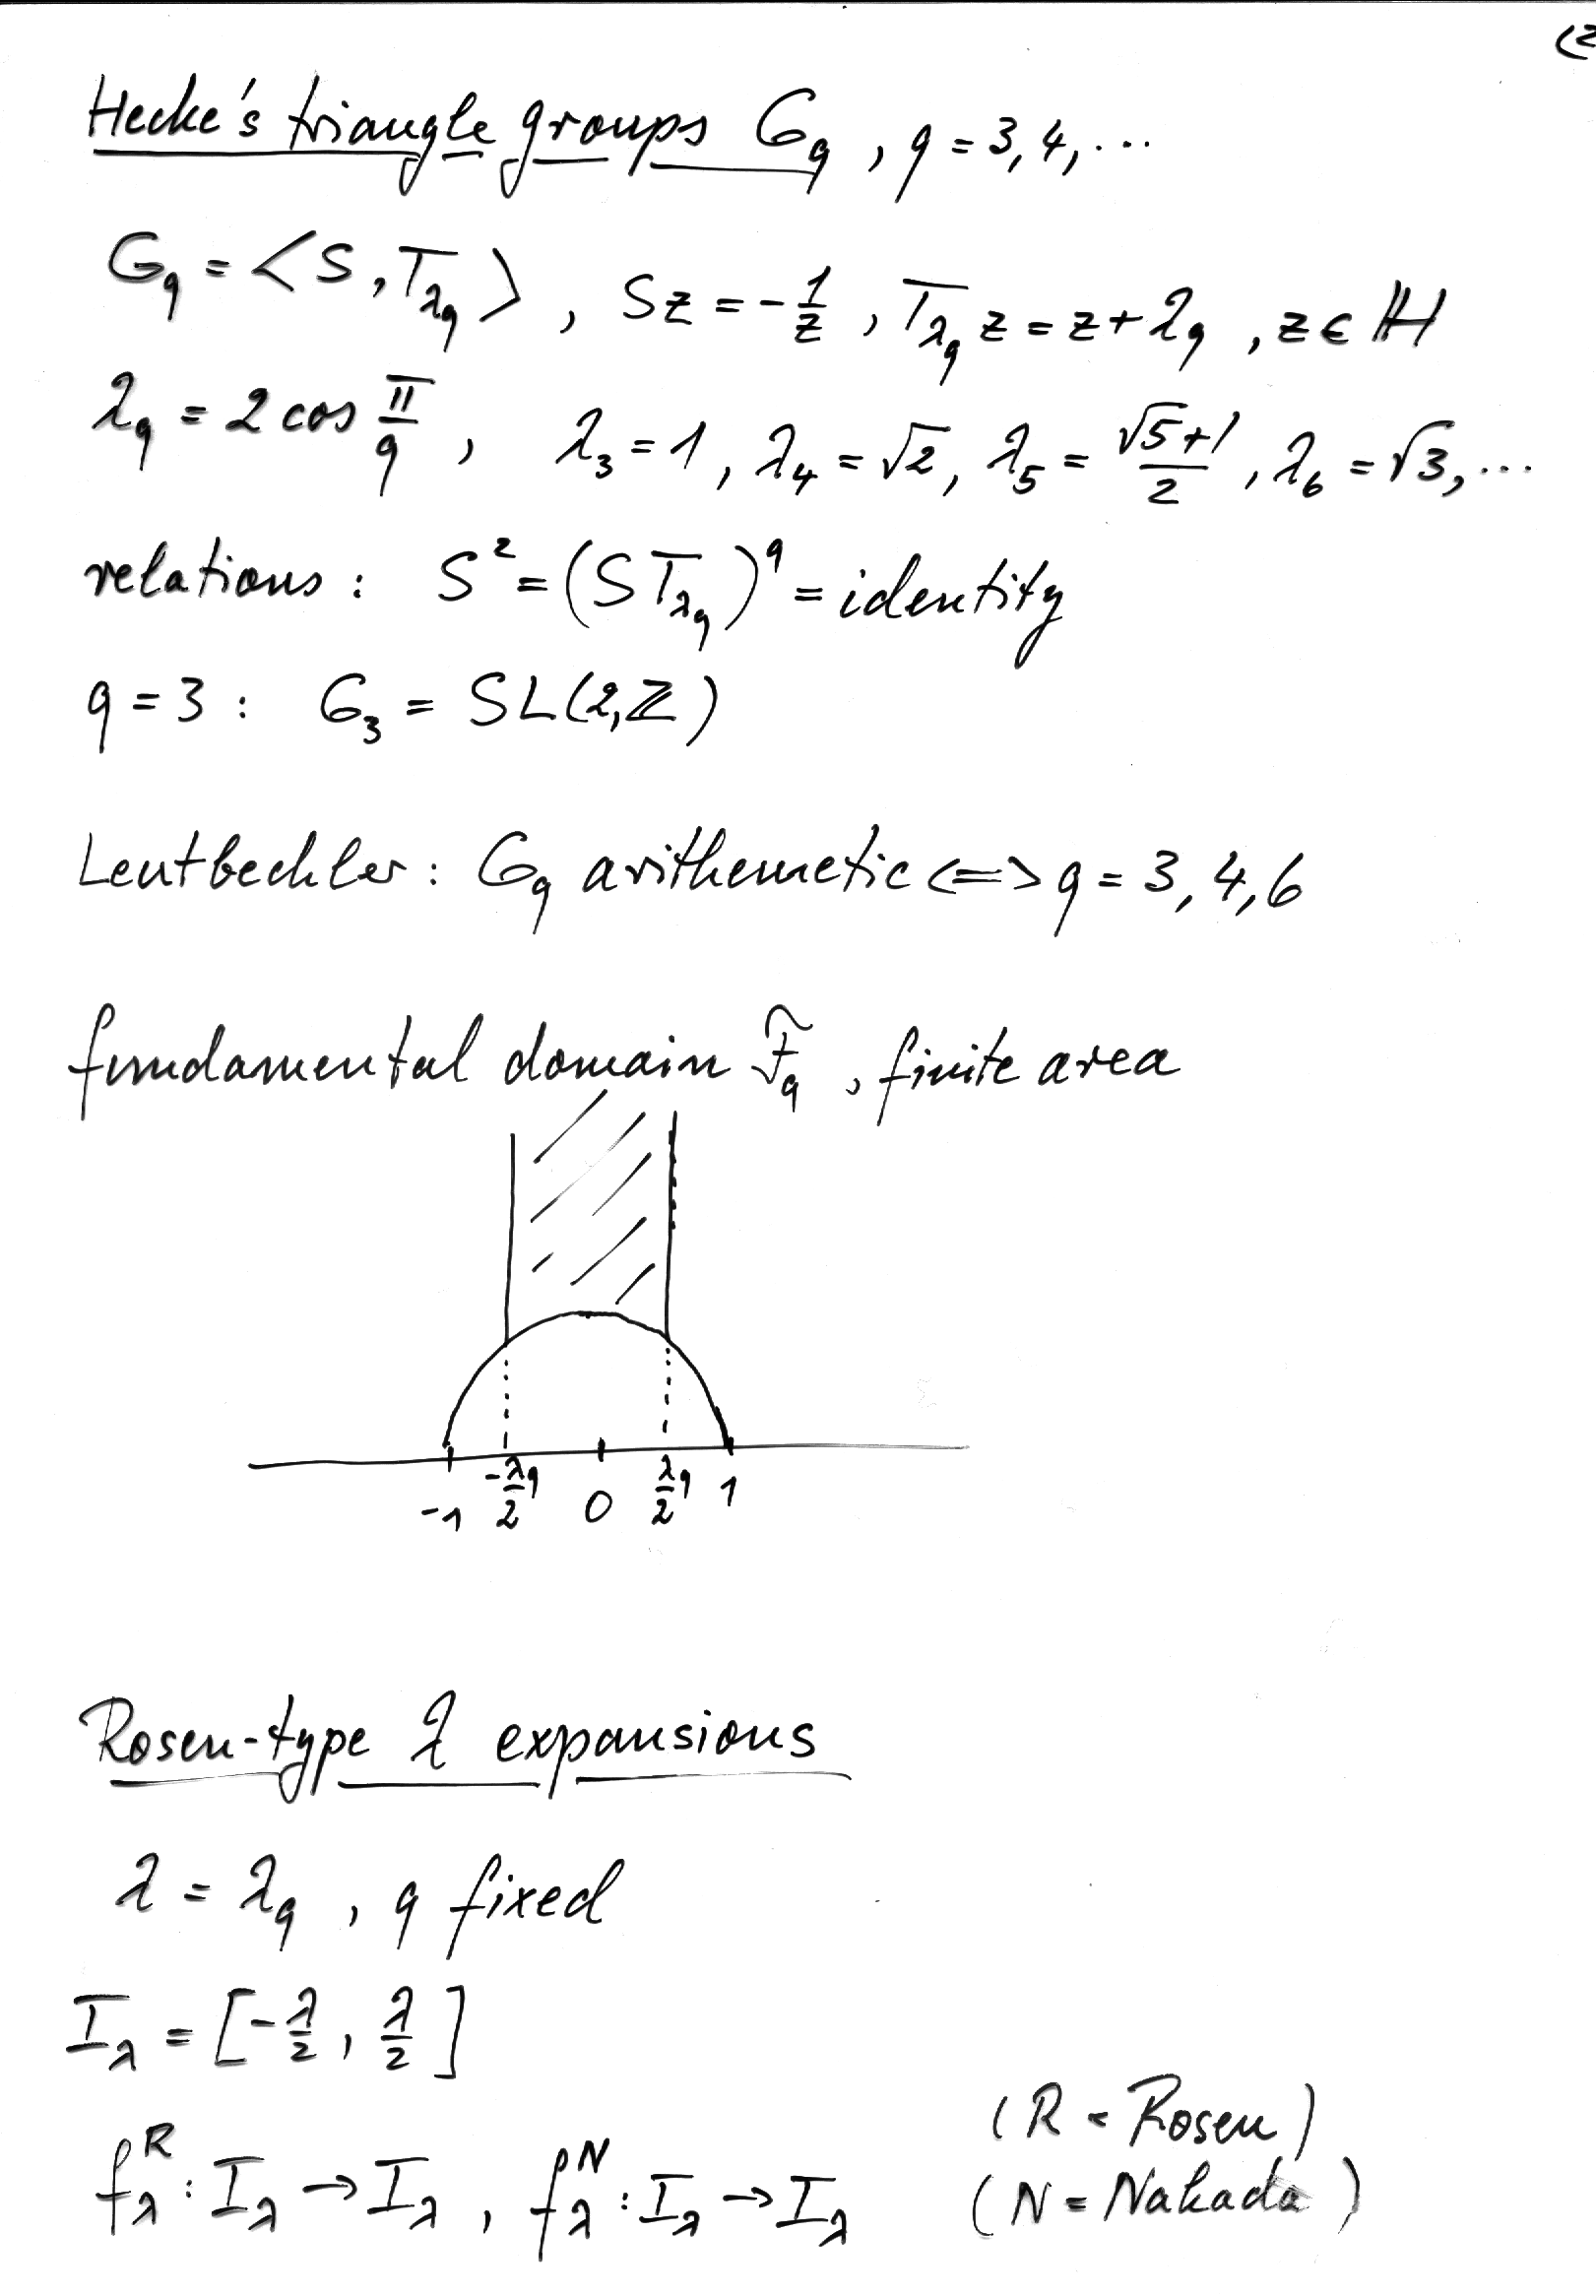 (2
Hecke's triangle groups G_q , q = 3, 4, ...
G_q = <S, T_{λ_q}> , Sz = -1/z , T_{λ_q} z = z + λ_q , z ∈ ℍ
λ_q = 2 cos π/q , λ_3 = 1, λ_4 = √2, λ_5 = (√5+1)/2 , λ_6 = √3, ...
relations : S^2 = (S T_{λ_q})^q = identity
q = 3 : G_3 = SL(2,ℤ)
Leutbechler : G_q arithmetic <=> q = 3, 4, 6
fundamental domain F̃_q , finite area
-1 -λ_q/2 0 λ_q/2 1
Rosen-type λ expansions
λ = λ_q , q fixed
I_λ = [-λ/2 , λ/2]
(R = Rosen)
f_λ^R : I_λ → I_λ , f_λ^N : I_λ → I_λ (N = Nakada)